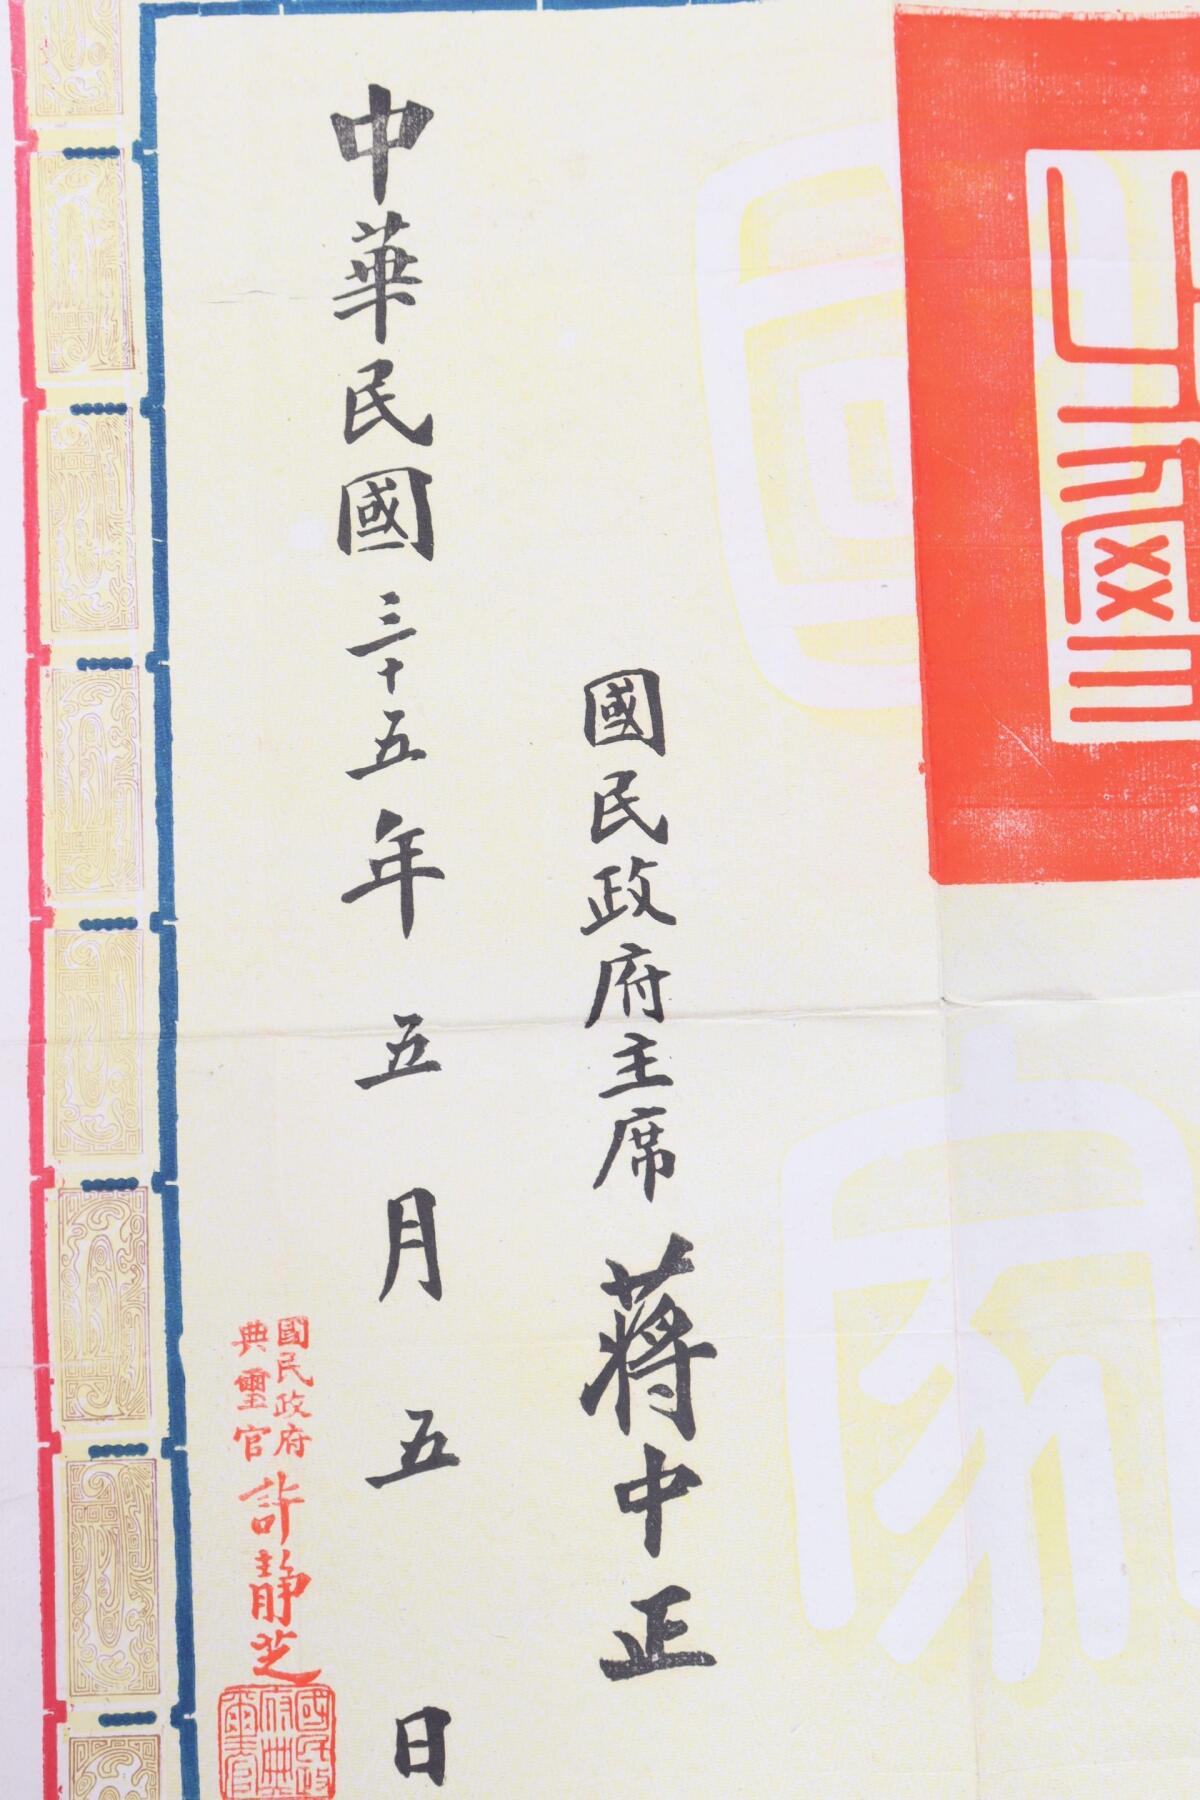 國民政府主席 蔣中正
中華民國三十五年五月五日
國民政府
典璽官 許靜芝
國民政
府典
璽官